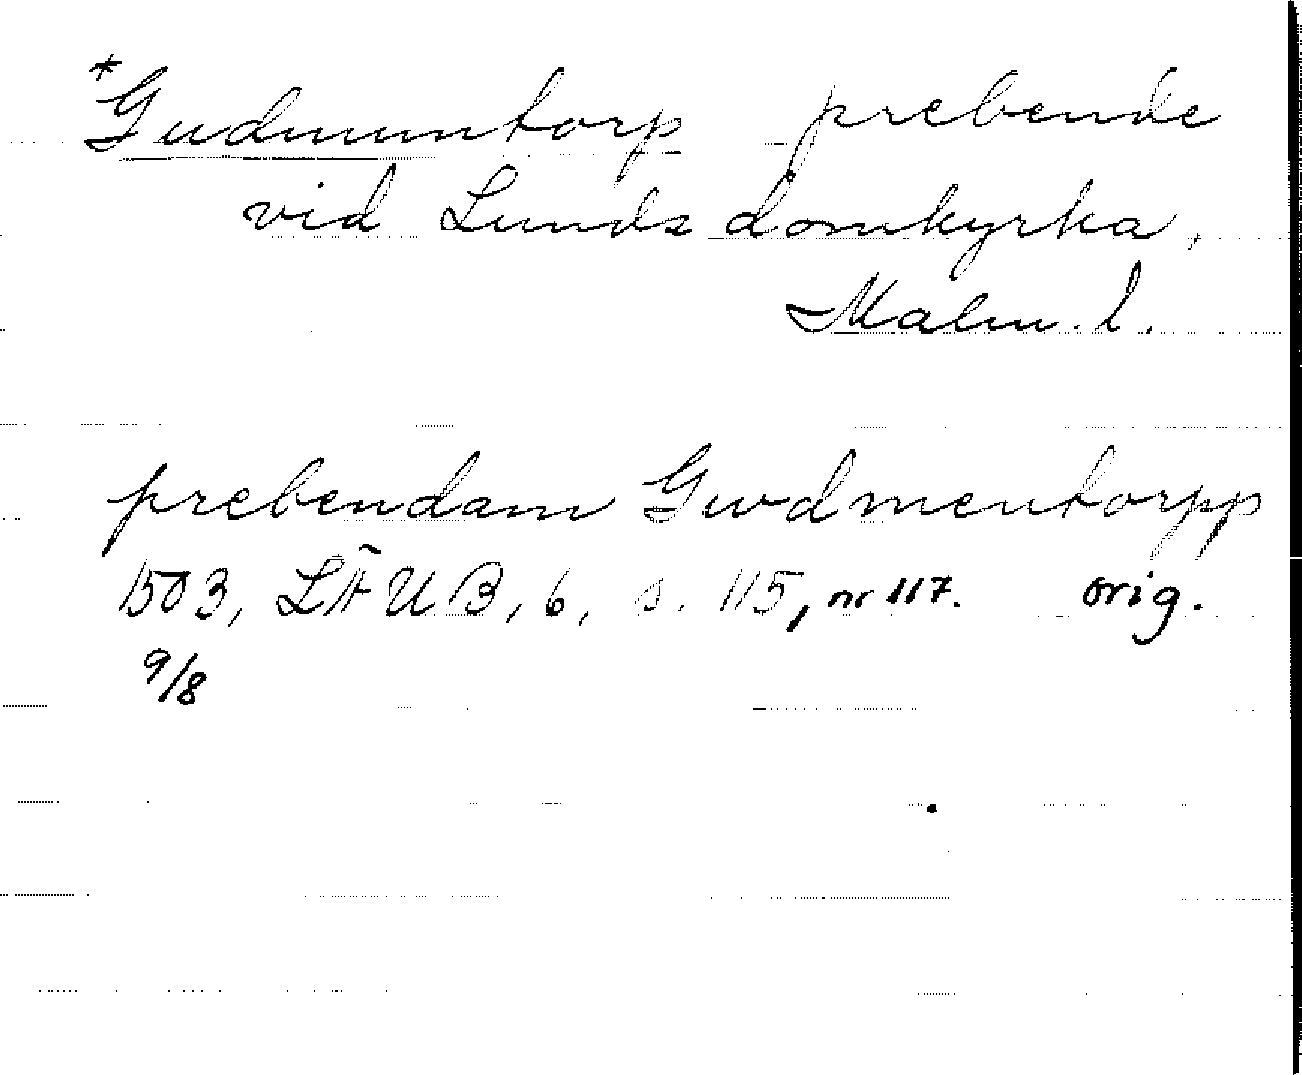 *Gudmuntorp prebende
vid Lunds domkyrka,
Malm. l.
prebendam Gwdmentorpp
1503, LÄUB, 6, s. 115, nr 117. orig.
9/8